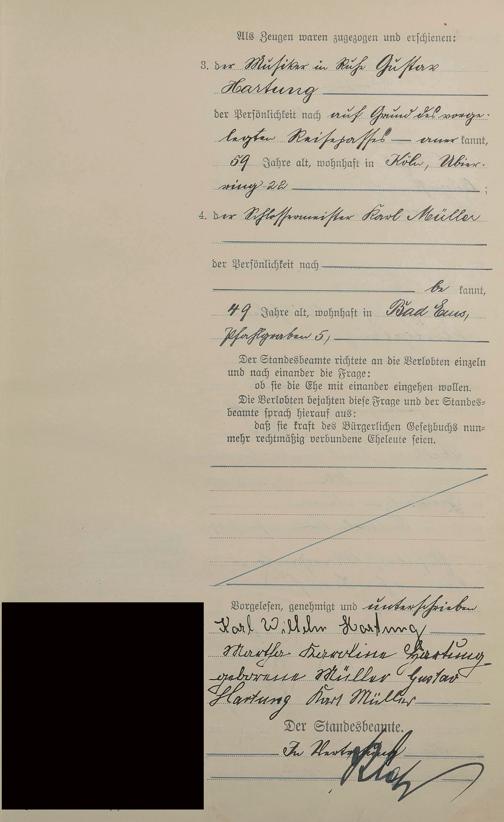 Als Zeugen waren zugezogen und erschienen:
3. der Musiker in Ruhe Gustav
Hartung
der Persönlichkeit nach auf Grund des vorge-
legten Reisepasses — aner kannt,
59 Jahre alt, wohnhaft in Köln, Ubier-
ring 22 ;
4. der Schlossermeister Karl Müller
der Persönlichkeit nach
be kannt,
49 Jahre alt, wohnhaft in Bad Ems,
Pfahlgraben 5,
Der Standesbeamte richtete an die Verlobten einzeln
und nach einander die Frage:
ob sie die Ehe mit einander eingehen wollen.
Die Verlobten bejahten diese Frage und der Standes-
beamte sprach hierauf aus:
daß sie kraft des Bürgerlichen Gesetzbuchs nun-
mehr rechtmäßig verbundene Eheleute seien.
Vorgelesen, genehmigt und unterschrieben
Karl Wilhelm Hartung
Martha Karoline Hartung
geborene Müller Gustav
Hartung Karl Müller
Der Standesbeamte.
In Vertretung